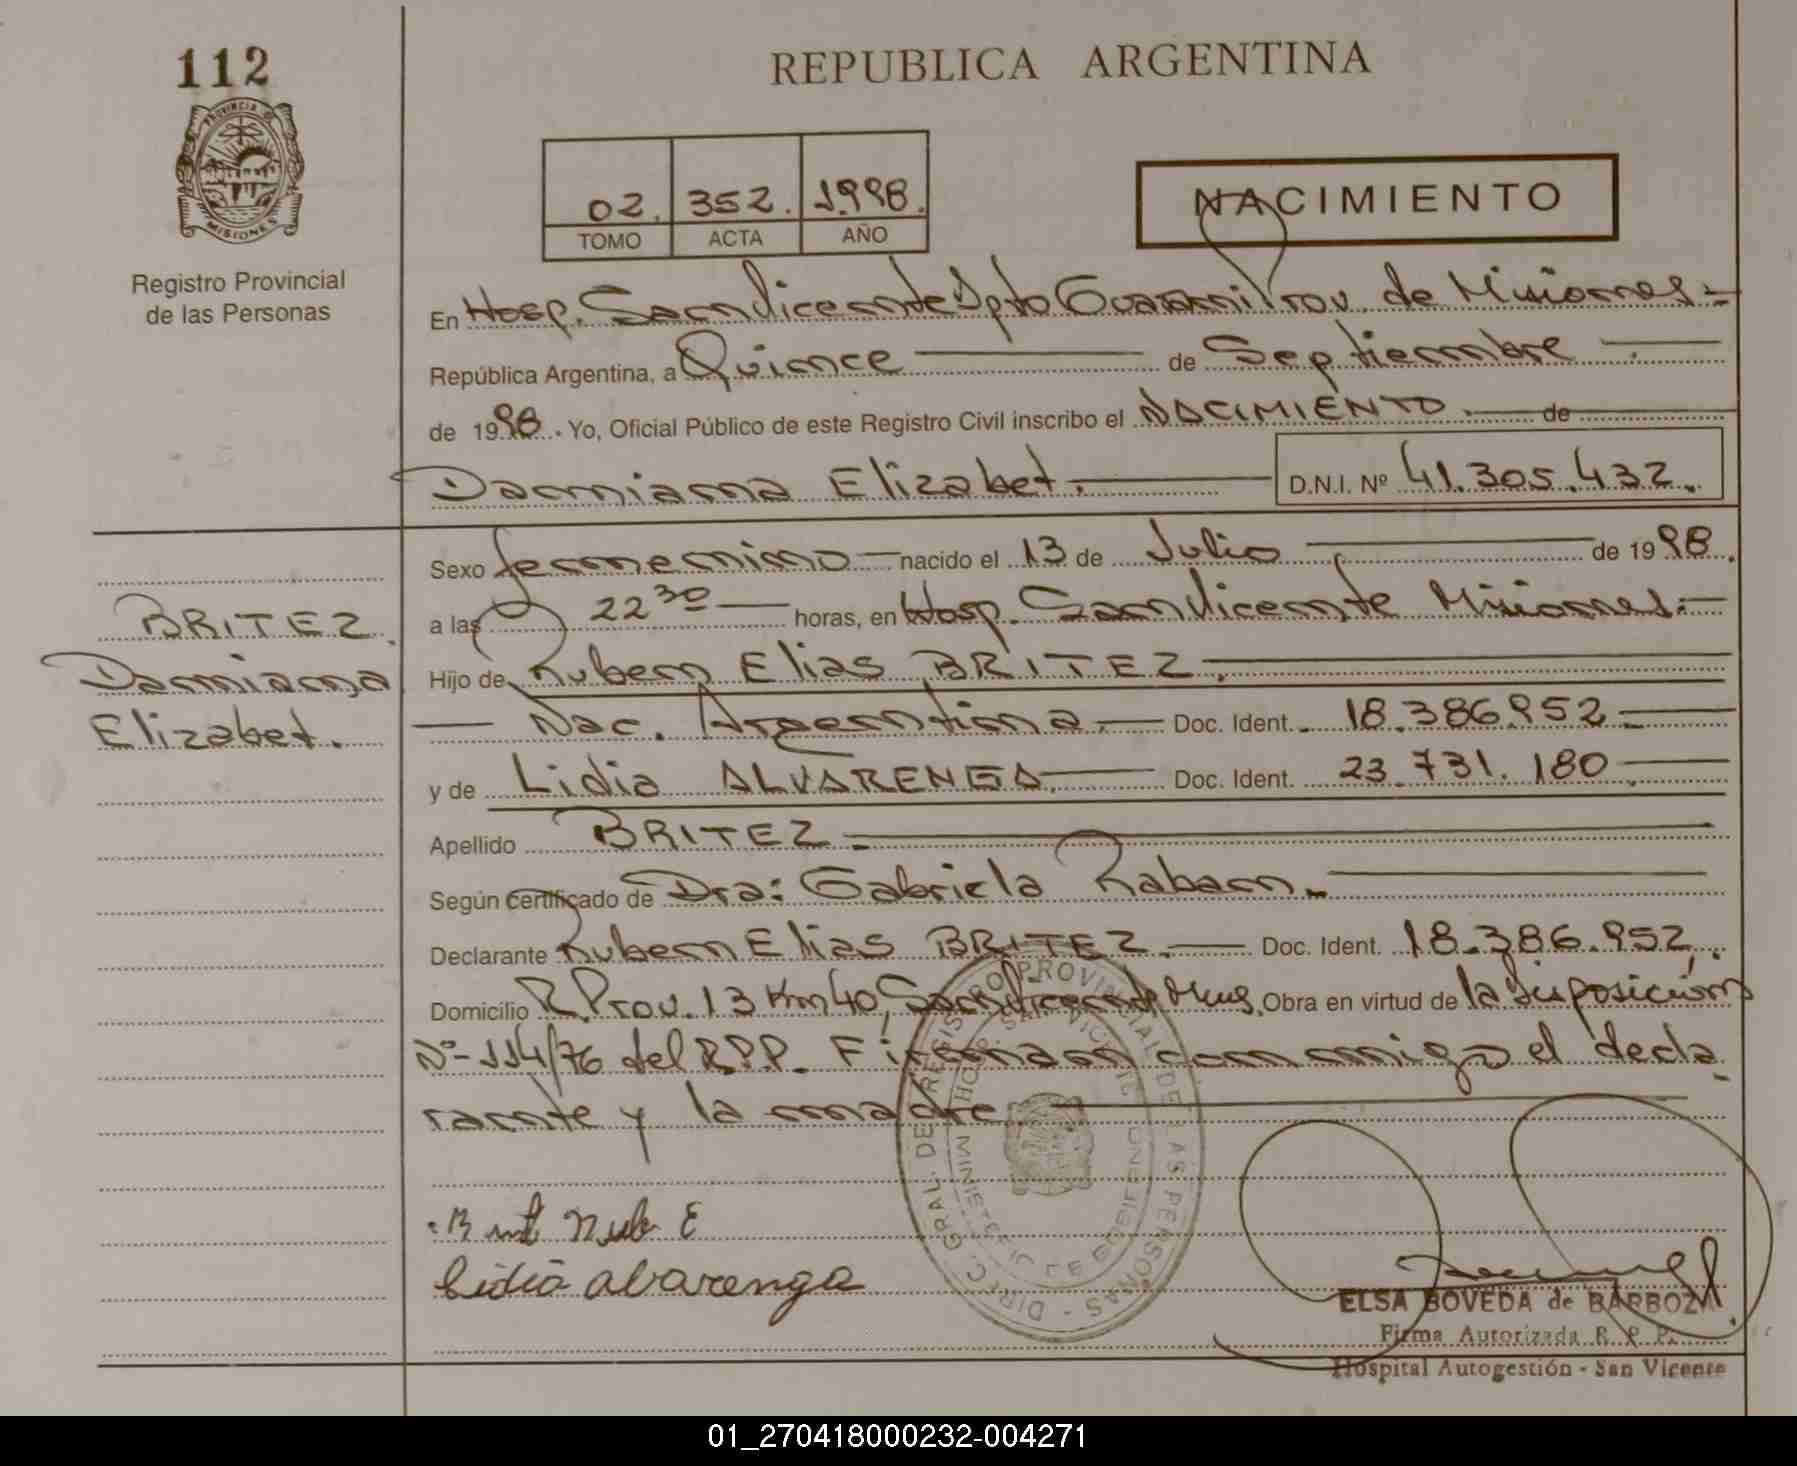 112
PROVINCIA DE
MISIONES
Registro Provincial
de las Personas
REPUBLICA ARGENTINA
02. 352. 1998.
TOMO ACTA AÑO
NACIMIENTO
En Hosp. San Vicente Dpto Guarani Prov. de Misiones.=
República Argentina, a Quince de Septiembre
de 1998. Yo, Oficial Público de este Registro Civil inscribo el NACIMIENTO. de
Damiana Elizabet. D.N.I. Nº 41.305.432.
Sexo femenino nacido el 13 de Julio de 1998.
a las 22 30 horas, en Hosp. San Vicente Misiones.
Hijo de Ruben Elias BRITEZ.
Nac. Argentina. Doc. Ident. 18.386.952
y de Lidia ALVARENGA Doc. Ident. 23.731.180
Apellido BRITEZ.
Según certificado de Dra: Gabriela Raban.
Declarante Ruben Elias BRITEZ. Doc. Ident. 18.386.952.
Domicilio R. Prov. 13 Km 40, San Vicente Mnes. Obra en virtud de la Disposición
Nº 114/76 del R.P.P. Firman conmigo el decla-
rante y la madre.
BRITEZ
Damiana
Elizabet.
Lidia alvarenga
DIREC. GRAL. DE REGISTRO PROVINCIAL DE LAS PERSONAS -
HOSP. SAN VICENTE
MINISTERIO DE GOBIERNO
ELSA BOVEDA de BARBOZA
Firma Autorizada R. P. P.
Hospital Autogestión - San Vicente
01_270418000232-004271